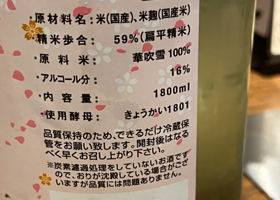 原材料名：米(国産)、米麹(国産米)
精米歩合： 59％(扁平精米)
原料米： 華吹雪100％
アルコール分： 16％
内容量： 1800ml
使用酵母： きょうかい1801
品質保持のため、できるだけ冷蔵保
管をお願い致します。開封後はなる
べく早くお召し上がり下さい。
※炭素濾過処理をしていないお酒です
ので、おりが沈殿している場合がござ
いますが品質には問題ありません。